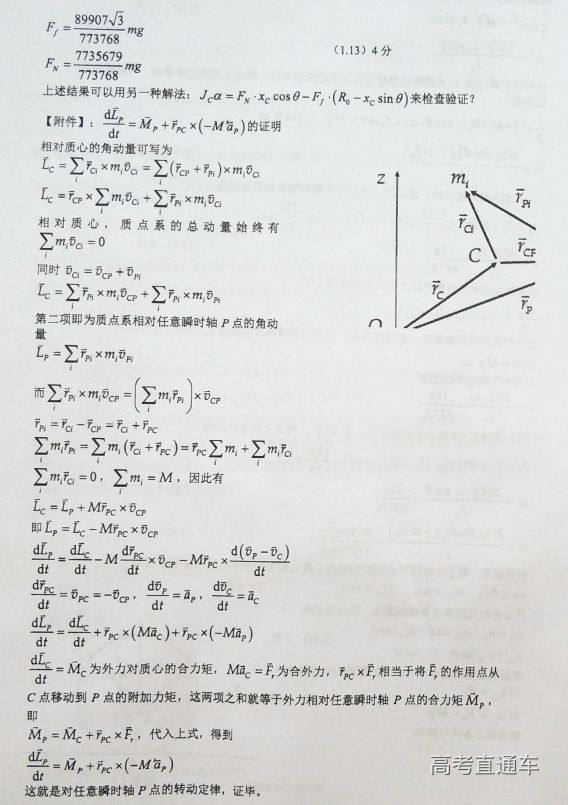 F_f = \frac{89907\sqrt{3}}{773768} mg
F_N = \frac{7735679}{773768} mg
(1.13) 4 分
上述结果可以用另一种解法：J_Cα = F_N · x_C cosθ − F_f · (R_0 − x_C sinθ) 来检查验证？
【附件】：\frac{d\vec{L}_P}{dt} = \vec{M}_P + \vec{r}_{PC} × (−M\vec{a}_P) 的证明
相对质心的角动量可写为
\vec{L}_C = \sum_i \vec{r}_{Ci} × m_i\vec{v}_{Ci} = \sum_i (\vec{r}_{CP} + \vec{r}_{Pi}) × m_i\vec{v}_{Ci}
\vec{L}_C = \vec{r}_{CP} × \sum_i m_i\vec{v}_{Ci} + \sum_i \vec{r}_{Pi} × m_i\vec{v}_{Ci}
相对质心，质点系的总动量始终有
\sum_i m_i\vec{v}_{Ci} = 0
同时 \vec{v}_{Ci} = \vec{v}_{CP} + \vec{v}_{Pi}
\vec{L}_C = \sum_i \vec{r}_{Pi} × m_i\vec{v}_{CP} + \sum_i \vec{r}_{Pi} × m_i\vec{v}_{Pi}
第二项即为质点系相对任意瞬时轴 P 点的角动
量
\vec{L}_P = \sum_i \vec{r}_{Pi} × m_i\vec{v}_{Pi}
而 \sum_i \vec{r}_{Pi} × m_i\vec{v}_{CP} = \left(\sum_i m_i\vec{r}_{Pi}\right) × \vec{v}_{CP}
\vec{r}_{Pi} = \vec{r}_{Ci} − \vec{r}_{CP} = \vec{r}_{Ci} + \vec{r}_{PC}
\sum_i m_i\vec{r}_{Pi} = \sum_i m_i(\vec{r}_{Ci} + \vec{r}_{PC}) = \vec{r}_{PC}\sum_i m_i + \sum_i m_i\vec{r}_{Ci}
\sum_i m_i\vec{r}_{Ci} = 0，\sum_i m_i = M，因此有
\vec{L}_C = \vec{L}_P + M\vec{r}_{PC} × \vec{v}_{CP}
即 \vec{L}_P = \vec{L}_C − M\vec{r}_{PC} × \vec{v}_{CP}
\frac{d\vec{L}_P}{dt} = \frac{d\vec{L}_C}{dt} − M\frac{d\vec{r}_{PC}}{dt} × \vec{v}_{CP} − M\vec{r}_{PC} × \frac{d(\vec{v}_P − \vec{v}_C)}{dt}
\frac{d\vec{r}_{PC}}{dt} = \vec{v}_{PC} = −\vec{v}_{CP}，\frac{d\vec{v}_P}{dt} = \vec{a}_P，\frac{d\vec{v}_C}{dt} = \vec{a}_C
\frac{d\vec{L}_P}{dt} = \frac{d\vec{L}_C}{dt} + \vec{r}_{PC} × (M\vec{a}_C) + \vec{r}_{PC} × (−M\vec{a}_P)
\frac{d\vec{L}_C}{dt} = \vec{M}_C 为外力对质心的合力矩，M\vec{a}_C = \vec{F}_r 为合外力，\vec{r}_{PC} × \vec{F}_r 相当于将 \vec{F}_r 的作用点从
C 点移动到 P 点的附加力矩，这两项之和就等于外力相对任意瞬时轴 P 点的合力矩 \vec{M}_P，
即
\vec{M}_P = \vec{M}_C + \vec{r}_{PC} × \vec{F}_r，代入上式，得到
\frac{d\vec{L}_P}{dt} = \vec{M}_P + \vec{r}_{PC} × (−M\vec{a}_P)
这就是对任意瞬时轴 P 点的转动定律，证毕。
z
m_i
\vec{r}_{Pi}
\vec{r}_{Ci}
C
\vec{r}_{CP}
\vec{r}_C
\vec{r}_P
高考直通车